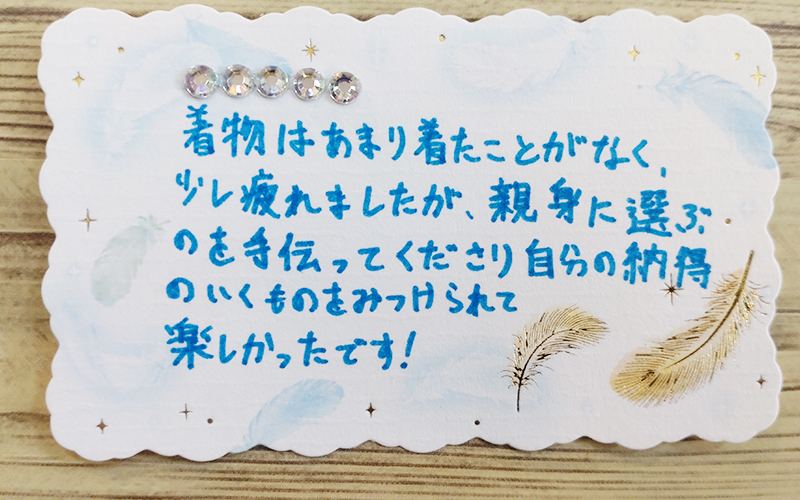 着物はあまり着たことがなく、
少し疲れましたが、親身に選ぶ
のを手伝ってくださり自分の納得
のいくものをみつけられて
楽しかったです!